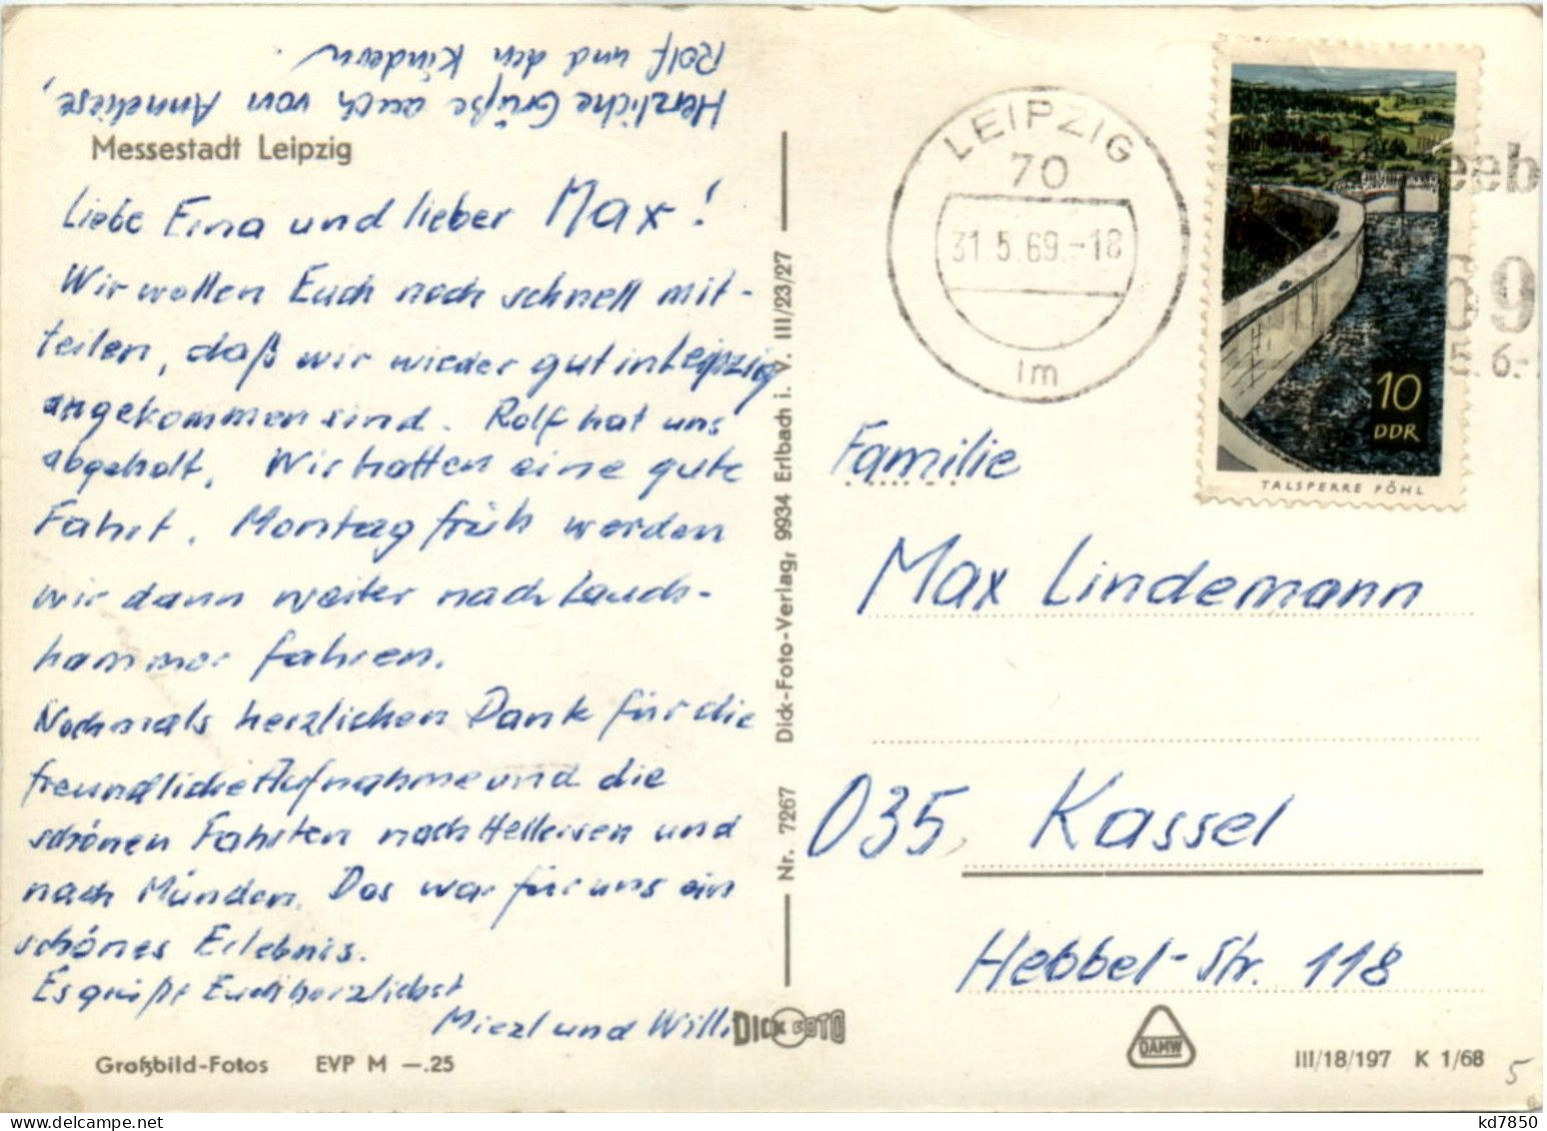 Herzliche Grüße auch von Anneliese,
Rolf und den Kindern.
Messestadt Leipzig
Liebe Erna und lieber Max!
Wir wollen Euch noch schnell mit-
teilen, daß wir wieder gut in Leipzig
angekommen sind. Rolf hat uns
abgeholt. Wir hatten eine gute
Fahrt. Montag früh werden
wir dann weiter nach Lauch-
hammer fahren.
Nochmals herzlichen Dank für die
freundliche Aufnahme und die
schönen Fahrten nach und
nach Münden. Das war für uns ein
schönes Erlebnis.
Es grüßt Euch herzlichst
Miezl und Willi
Großbild-Fotos EVP M —.25
Nr. 7267 Dick-Foto-Verlag, 9934 Erlbach i. V. III/23/27
DICK FOTO
LEIPZIG
70
31.5.69.-18
lm
eeb
69
5.6.-
10
DDR
TALSPERRE PÖHL
Familie
Max Lindemann
035 Kassel
Hebbel-Str. 118
DAMW
III/18/197 K 1/68
5
kd7850